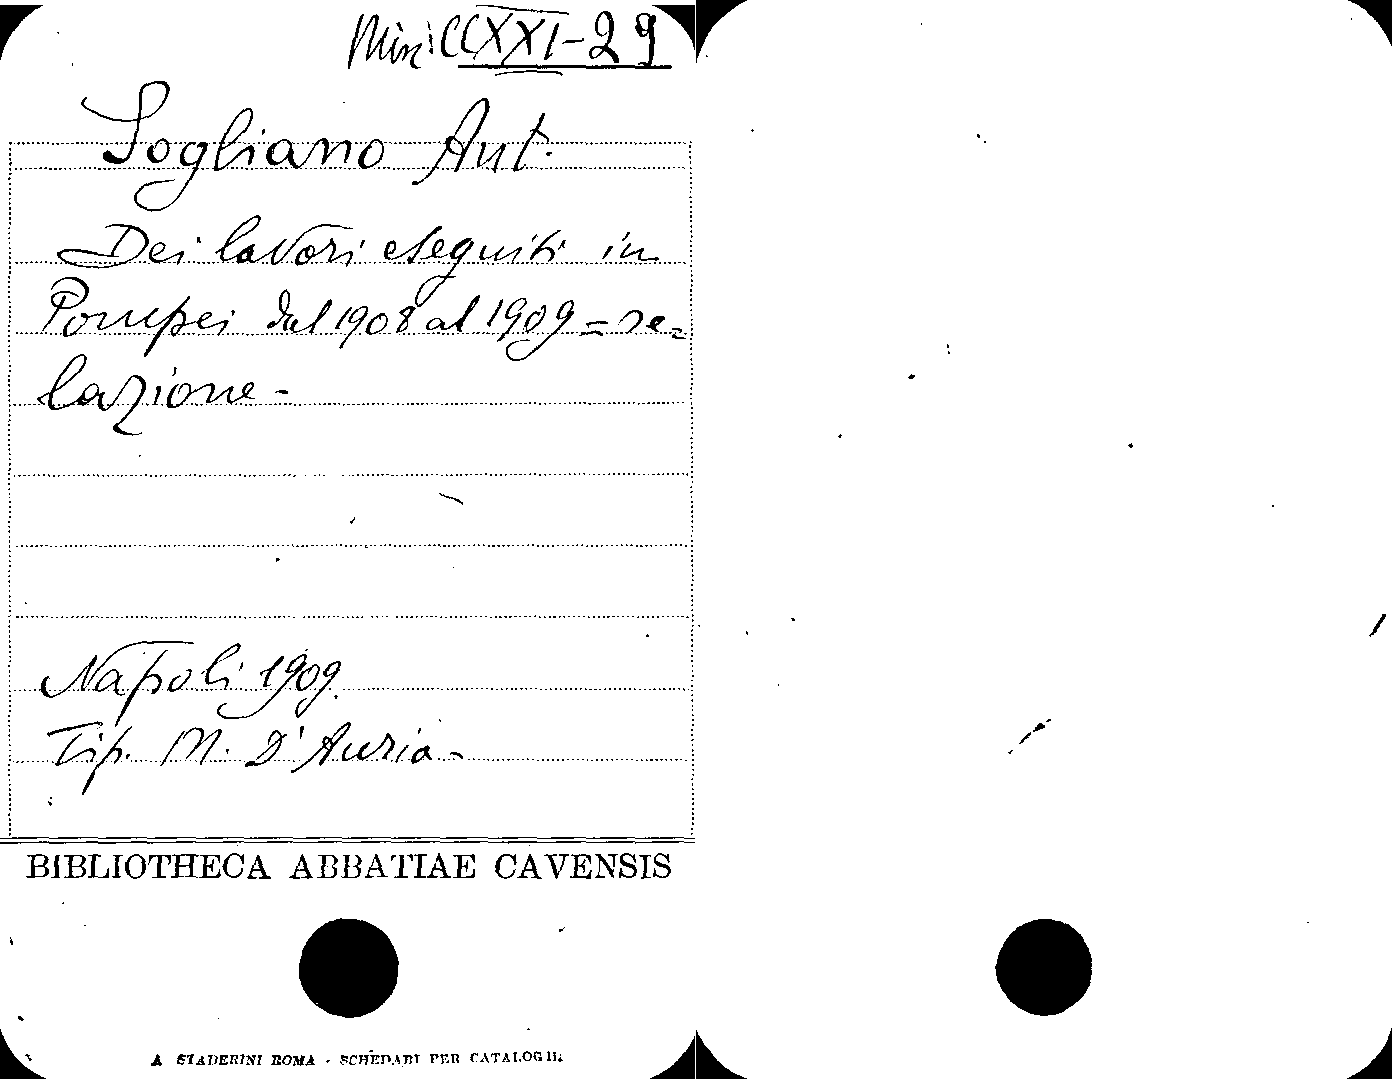 Misc. CCXXI-29
Sogliano Ant.
Dei lavori eseguiti in
Pompei dal 1908 al 1909 = re=
lazione -
Napoli 1909.
Tip. M. D'Auria -
BIBLIOTHECA ABBATIAE CAVENSIS
A STADERINI ROMA - SCHEDARI PER CATALOGHI